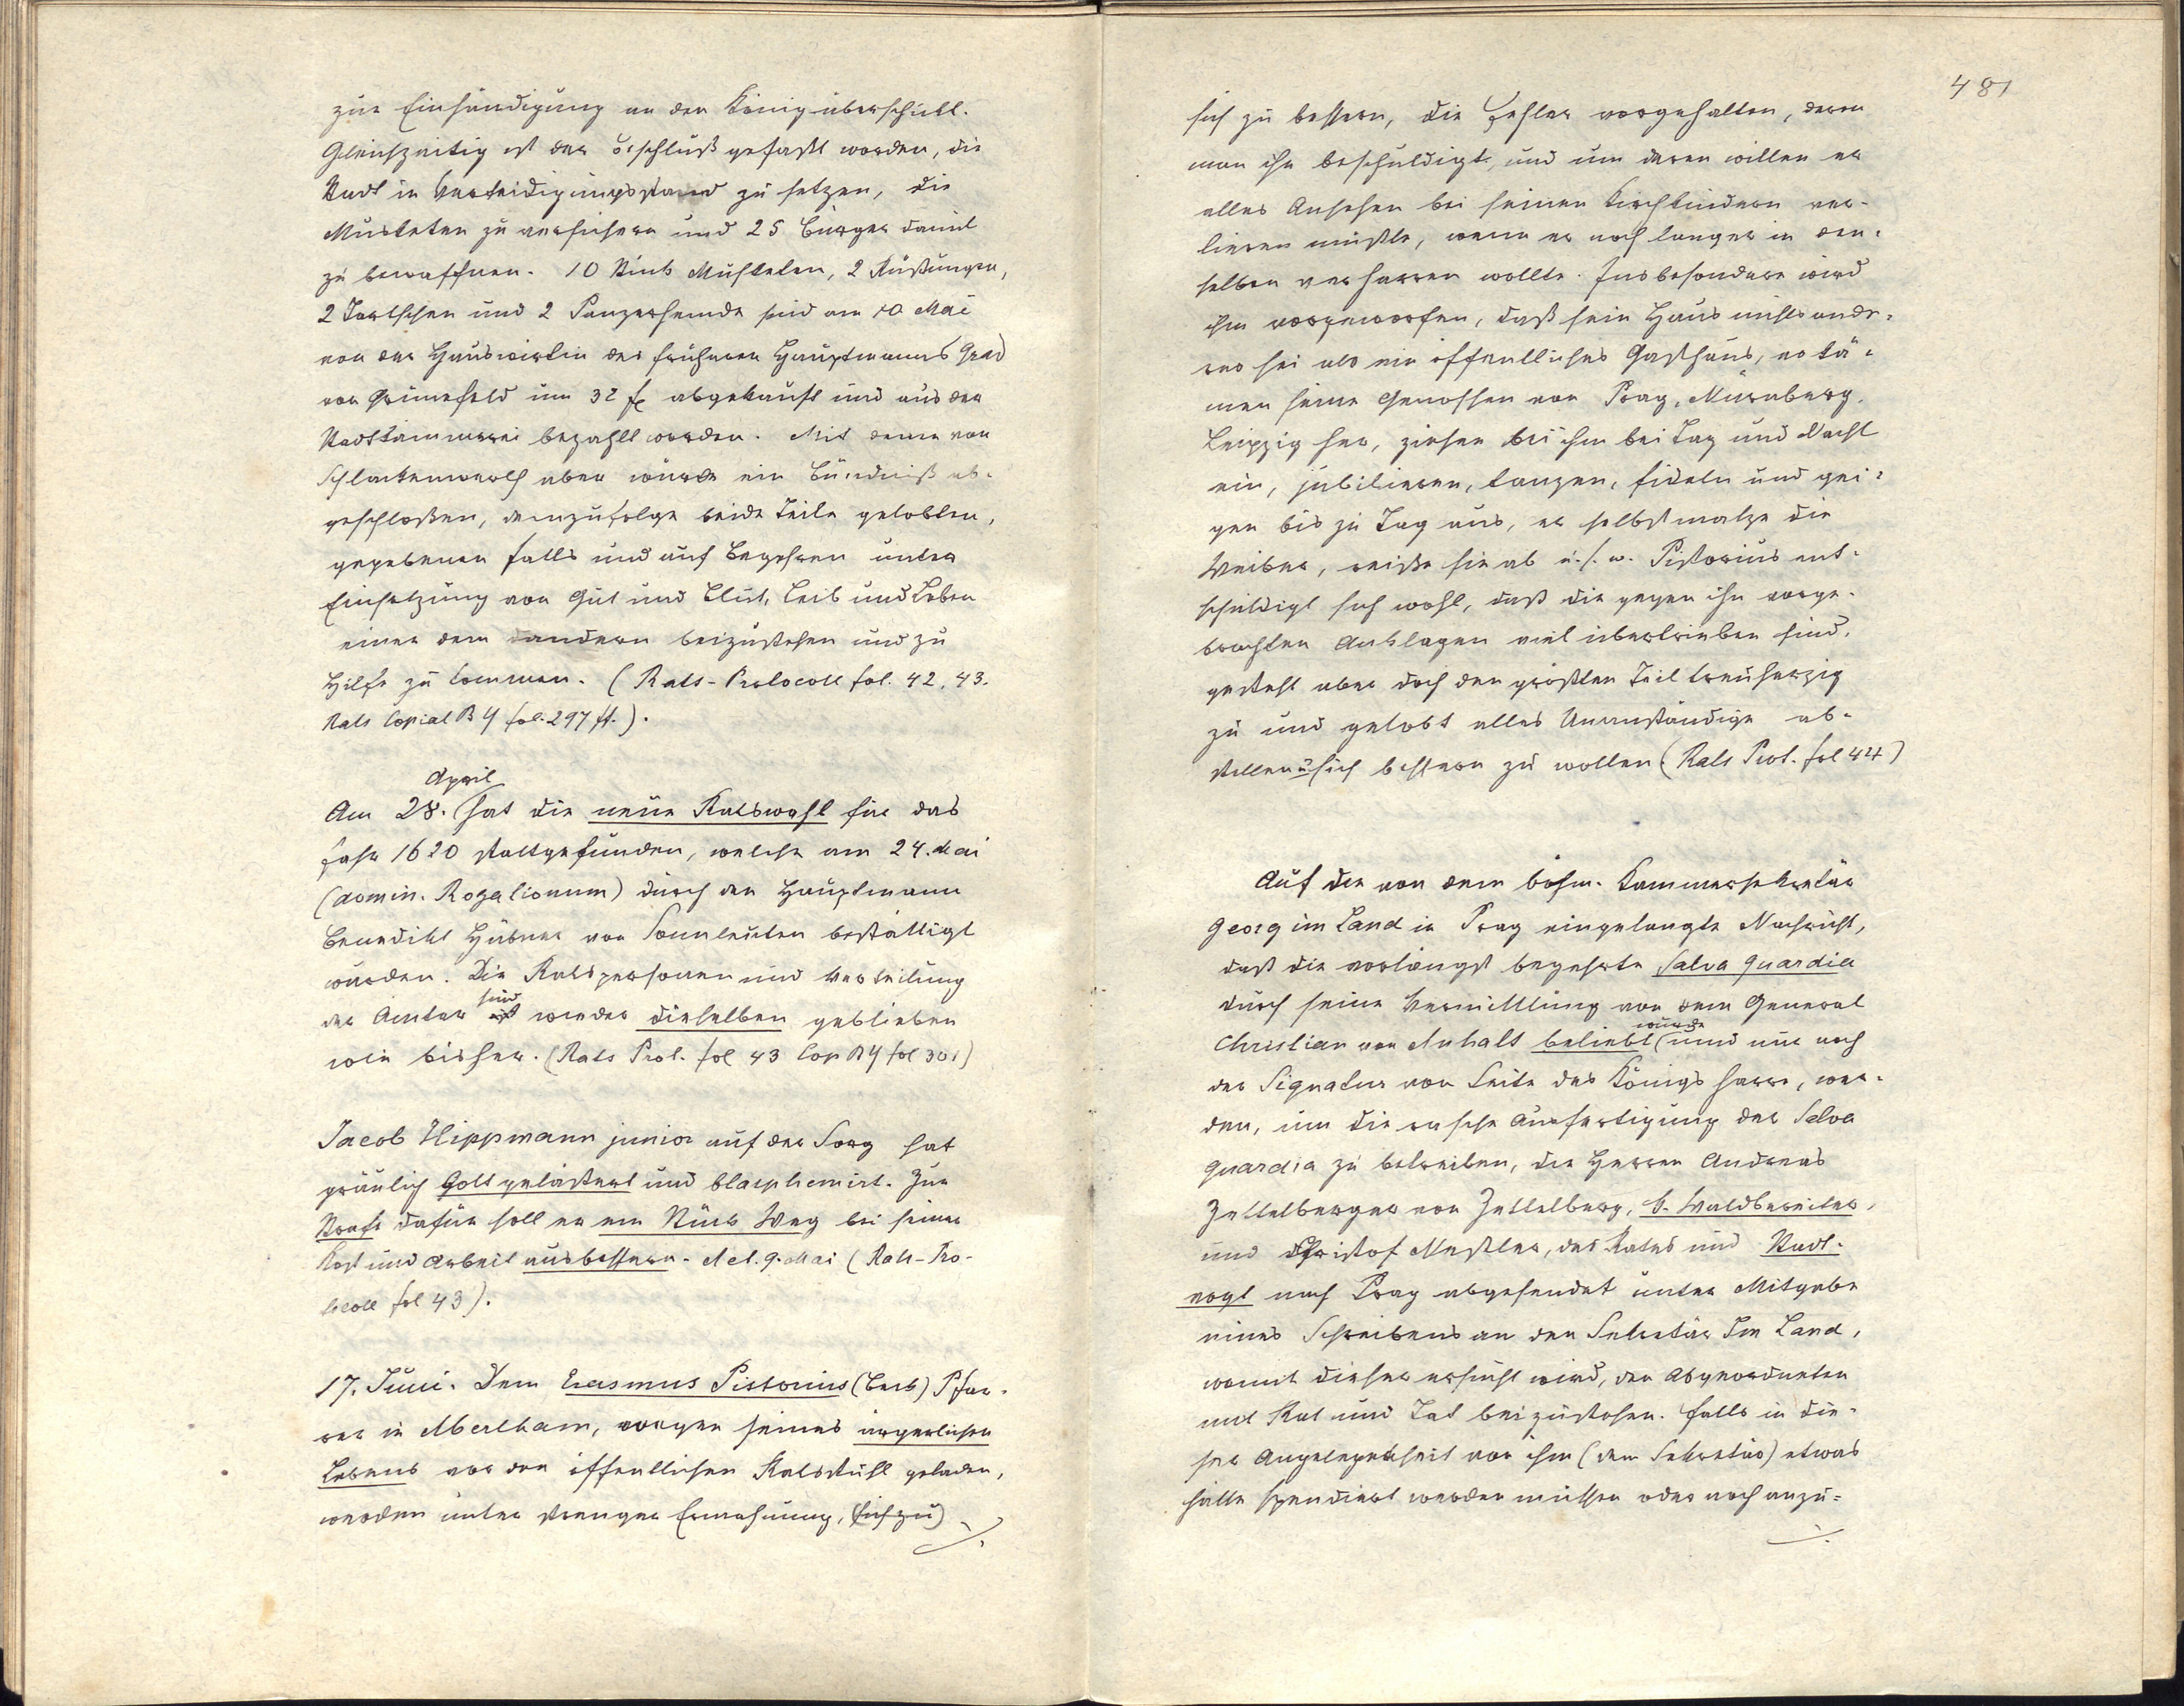 zur Einhändigung an den König überschickt.
Gleichzeitig ist der Beschluß gefaßt worden, die
Stadt in Verteidigungsstand zu setzen, die
Musketen zu versichern und 25 Bürger damit
zu bewaffnen. 10 Stück Musketen, 2 Rüstungen,
2 Tartschen und 2 Panzerhemde sind am 10 Mai
von der Hauswirtin des früheren Hauptmanns Grad
von Grünefeld um 32 fl abgekauft und aus der
Stadtkämmerei bezahlt worden. Mit denen von
Schlackenwerth aber wurde ein Bündniß ab-
geschloßen, demzufolge beide Teile gelobten,
gegebenen falls und auf Begehren unter
Einsetzung von Gut und Blut, Leib und Leben
einer dem andern beizustehen und zu
Hilfe zu kommen. (Rats-Protocoll fol. 42, 43.
Rats Copial B 4 fol. 297 ff.).
April
Am 28. hat die neue Ratswahl für das
Jahr 1620 stattgefunden, welche am 24. Mai
(domin. Rogationum) durch den Hauptmann
Benedikt Hübner von Sonnleuten bestättigt
wurden. Die Ratspersonen und Verteilung
der Ämter sind wieder dieselben geblieben
wie bisher. (Rats Prot. fol 43 Cop B 4 fol 301)
Jacob Hippmann junior auf der Sorg hat
gräulich Gott gelästert und blasphemirt. Zur
Strafe dafür soll er ein Stück Weg bei seiner
Kost und Arbeit ausbessern. Act. 9. Mai (Rats-Pro-
tocoll fol 43).
17. Juni. Dem Erasmus Pistorius (Beck) Pfar-
rer in Abertham, wegen seines ärgerlichen
Lebens vor den öffentlichen Ratsstuhl geladen,
werden unter strenger Ermahnung, (sich zu)
./.
481
sich zu bessern, die Fehler vorgehalten, deren
man ihn beschuldigt, und um deren willen er
alles Ansehen bei seinen Kirchkindern ver-
lieren müßte, wenn er noch länger in den-
selben verharren wollte. Insbesondere wird
ihm vorgeworfen, daß sein Haus nichts ande-
res sei als ein öffentliches Gasthaus, es kä-
men seine Genossen von Prag, Nürnberg,
Leipzig her, ziehen bei ihm bei Tag und Nacht
ein, jubilieren, tanzen, fideln und gei-
gen bis zu Tag aus, er selbst malze die
Weiber, reiße sie ab u. s. w. Pistorius ent-
schuldigt sich wohl, daß die gegen ihn vorge-
brachten Anklagen viel übertrieben sind,
gesteht aber doch den größten Teil treuherzig
zu und gelobt alles Unanständige ab-
stellen u sich bessern zu wollen (Rats Prot. fol 44)
Auf die von dem böhm. Kammersekretär
Georg im Land in Prag eingelangte Nachricht,
daß die vorlängst begehrte Salva guardia
durch seine Vermittlung von dem General
Christian von Anhalt beliebt wurde und nur noch
der Signatur von Seite des Königs harre, wer-
den, um die rasche Ausfertigung der Salva
guardia zu betreiben, die Herren Andreas
Zettelberger von Zettelberg, k. Waldbereiter,
und Christof Meßler, des Rates und Stadt-
vogt nach Prag abgesendet unter Mitgabe
eines Schreibens an den Sekretär Im Land,
womit dieser ersucht wird, den Abgeordneten
mit Rat und Tat beizustehen. Falls in die-
ser Angelegenheit von ihm (dem Sekretär) etwas
hätte spendiert werden müssen oder noch anzu-
./.